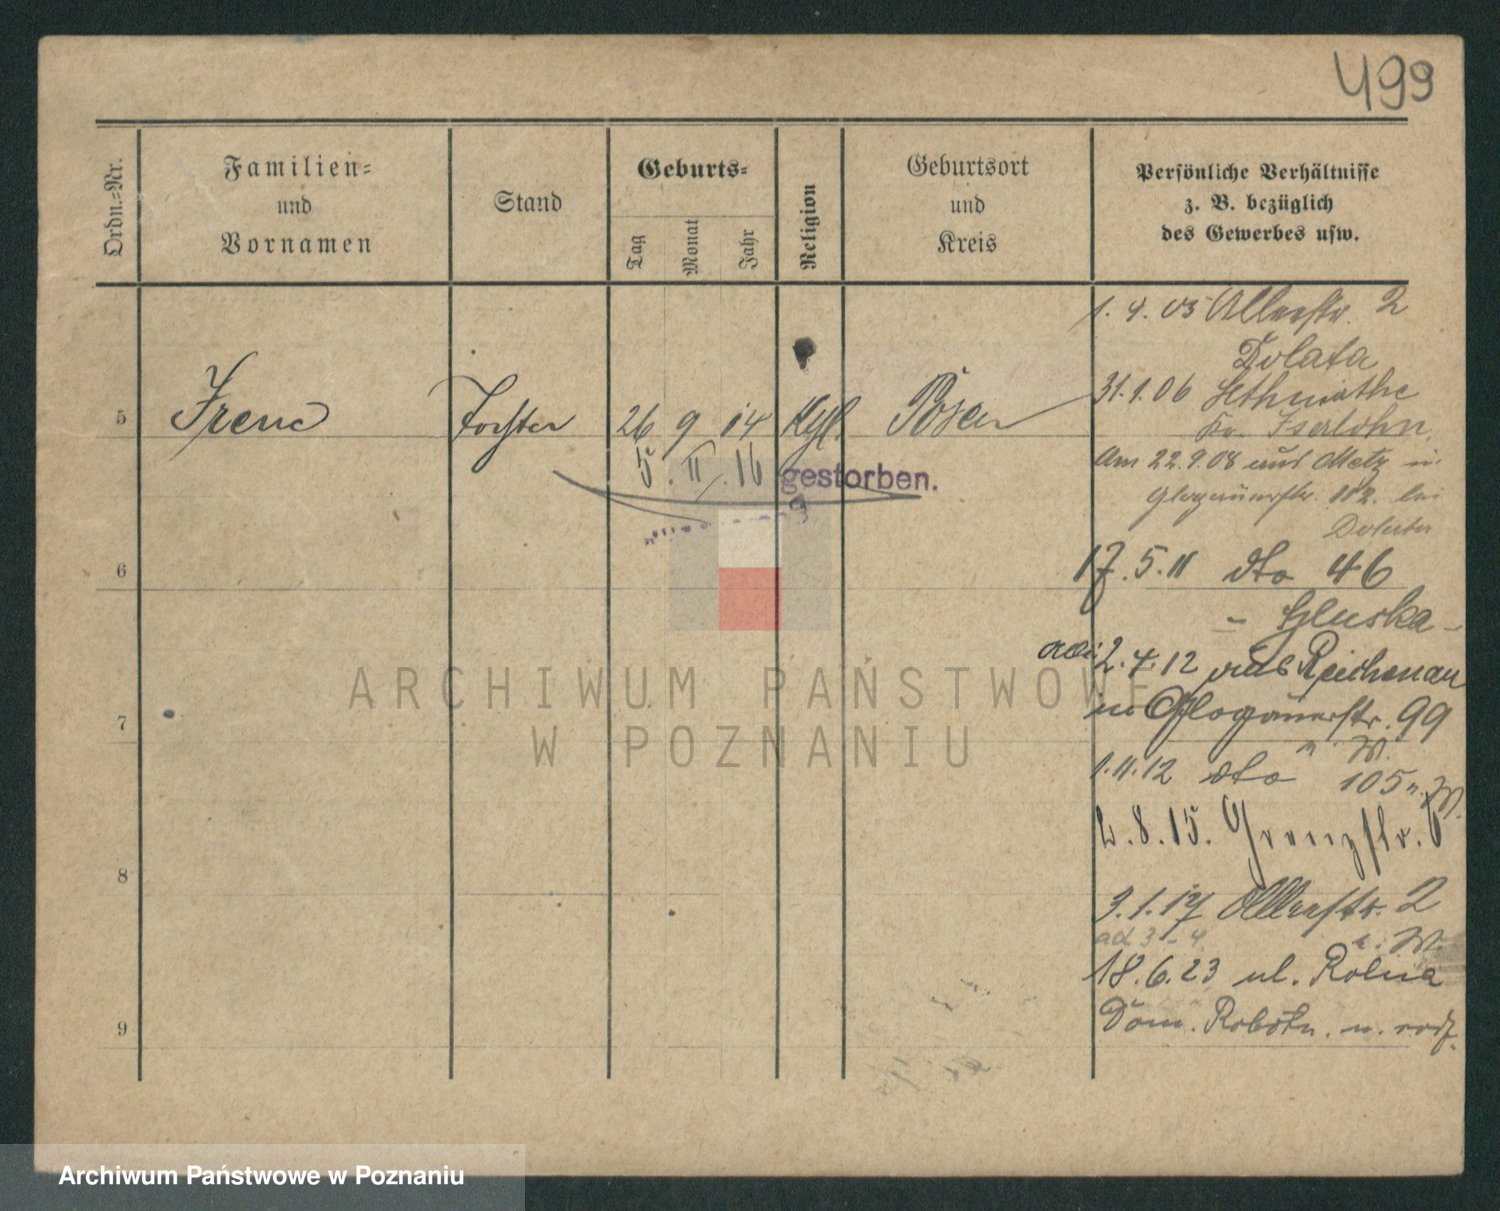 499
Ordn.-Nr.
Familien-
und
Vornamen
Stand
Geburts-
Tag
Monat
Jahr
Religion
Geburtsort
und
Kreis
Persönliche Verhältnisse
z. B. bezüglich
des Gewerbes usw.
1. 4. 05 Allerstr. 2
Dolata
5 Irene Tochter 26 9 14 Kgl. Posen
31.1.06 Lethmathe
Kr. Iserlohn.
5. II. 16 gestorben.
Am 22.9.08 aus Metz in
Glogauerstr. bei
6
17.5.11 dto 46
- Gluska -
2.4.12 aus Reichenau
in Glogauerstr. 99
n. W.
7
1.11.12 dto 105 n. W.
2.8.15. Grenzstr. 6
8
3.1.17 Allerstr. 2
ad 3-4 n. W.
18.6.23 ul. Rolna
9
Dom. Robotn. n. rodz.
ARCHIWUM PAŃSTWOWE
W POZNANIU
Archiwum Państwowe w Poznaniu